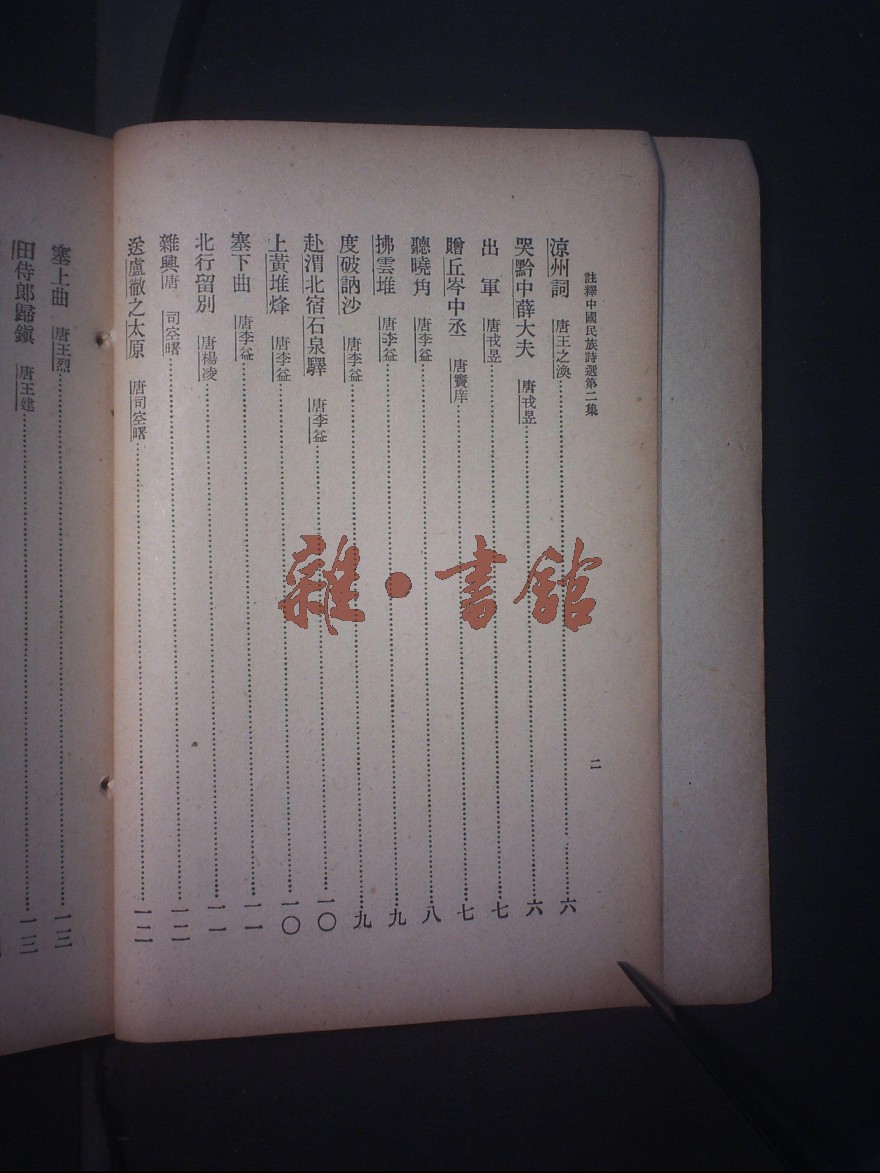 註釋中國民族詩選第二集
二
涼州詞 唐王之渙 六
哭黔中薛大夫 唐戎昱 六
出軍 唐戎昱 七
贈丘岑中丞 唐竇庠 七
聽曉角 唐李益 八
拂雲堆 唐李益 九
度破訥沙 唐李益 九
赴渭北宿石泉驛 唐李益 一〇
上黃堆烽 唐李益 一〇
塞下曲 唐李益 一一
北行留別 唐楊凌 一一
雜興 唐司空曙 一二
送盧徹之太原 唐司空曙 一二
塞上曲 唐王烈 一三
田侍郎歸鎮 唐王建 一三
雜·書館